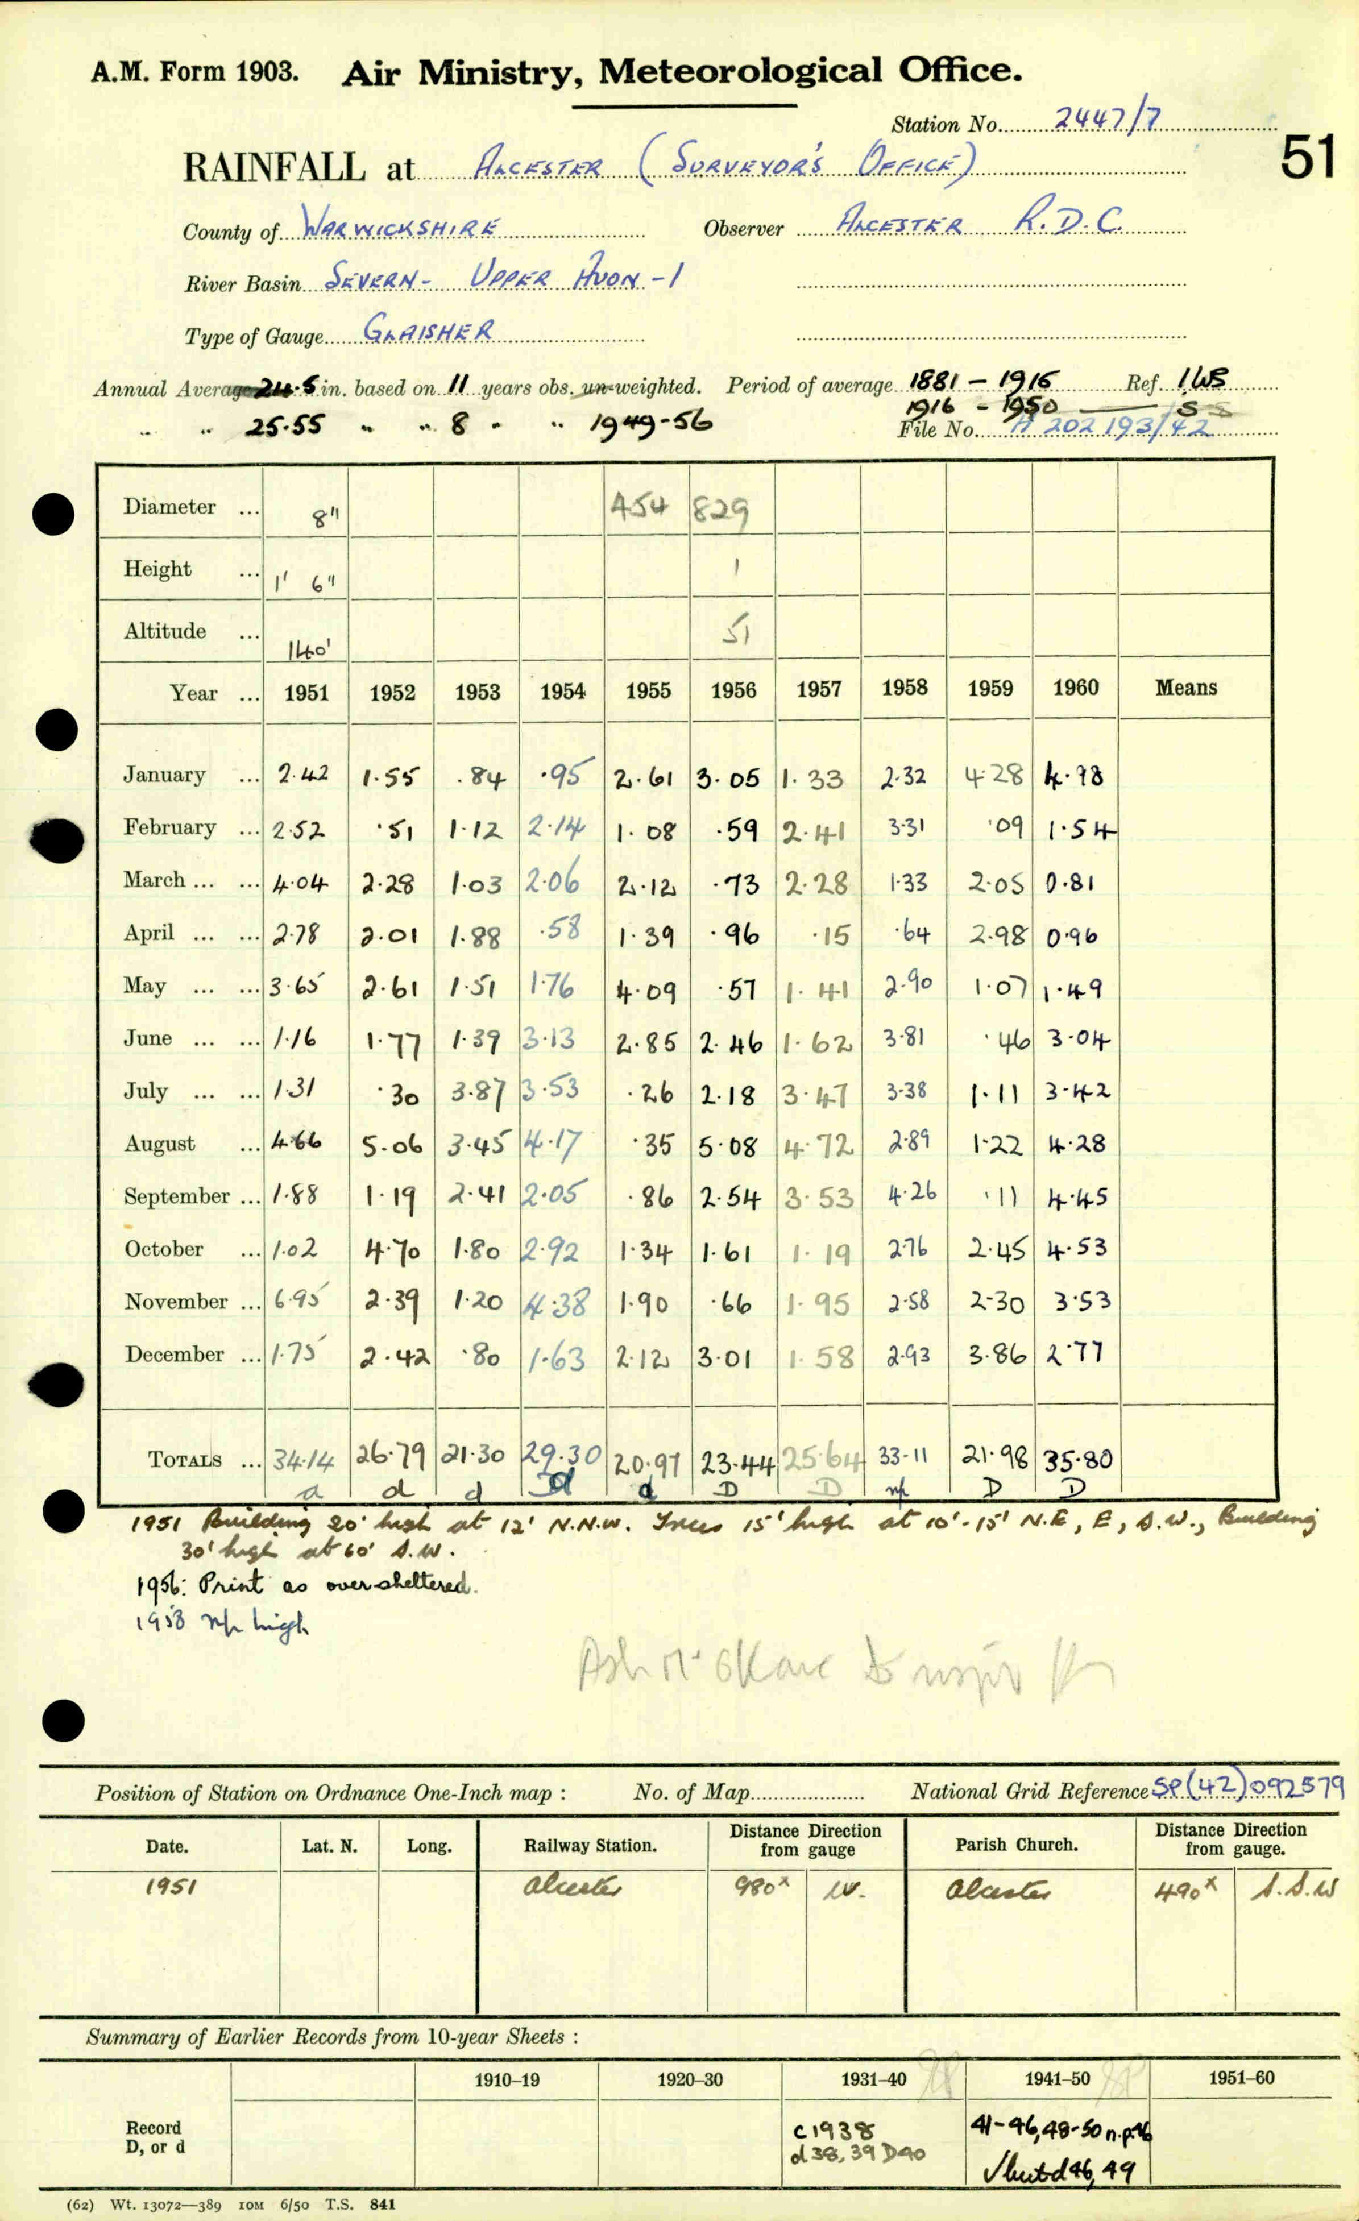 A.M. Form 1903. Air Ministry, Meteorological Office.
Station No. 2447/7
51
RAINFALL at ALCESTER (SURVEYOR'S OFFICE)
County of WARWICKSHIRE Observer ALCESTER R.D.C.
River Basin SEVERN - UPPER AVON - 1
Type of Gauge GLAISHER
Annual Average 24.5 in. based on 11 years obs. un-weighted. Period of average 1881 - 1915 Ref. IWS
1916 - 1950 — S S
" " 25.55 " " 8 " " 1949-56 File No. A 202193/42
Diameter ... 8" 454 829
Height ... 1' 6" 1
Altitude ... 140' 51
Year ... 1951 1952 1953 1954 1955 1956 1957 1958 1959 1960 Means
January ... 2.42 1.55 .84 .95 2.61 3.05 1.33 2.32 4.28 4.98
February ... 2.52 .51 1.12 2.14 1.08 .59 2.41 3.31 .09 1.54
March ... ... 4.04 2.28 1.03 2.06 2.12 .73 2.28 1.33 2.05 0.81
April ... ... 2.78 2.01 1.88 .58 1.39 .96 .15 .64 2.98 0.96
May ... ... 3.65 2.61 1.51 1.76 4.09 .57 1.41 2.90 1.07 1.49
June ... ... 1.16 1.77 1.39 3.13 2.85 2.46 1.62 3.81 .46 3.04
July ... ... 1.31 .30 3.87 3.53 .26 2.18 3.47 3.38 1.11 3.42
August ... 4.66 5.06 3.45 4.17 .35 5.08 4.72 2.89 1.22 4.28
September ... 1.88 1.19 2.41 2.05 .86 2.54 3.53 4.26 .11 4.45
October ... 1.02 4.70 1.80 2.92 1.34 1.61 1.19 2.76 2.45 4.53
November ... 6.95 2.39 1.20 4.38 1.90 .66 1.95 2.58 2.30 3.53
December ... 1.75 2.42 .80 1.63 2.12 3.01 1.58 2.93 3.86 2.77
TOTALS ... 34.14 26.79 21.30 29.30 20.97 23.44 25.64 33.11 21.98 35.80
a d d d d D D np D D
1951 Building 20' high at 12' N.N.W. Trees 15' high at 10'-15' N.E, E, S.W., Building
30' high at 60' S.W.
1956: Print as oversheltered.
1958 np high
Position of Station on Ordnance One-Inch map : No. of Map National Grid Reference SP(42)092579
Date. Lat. N. Long. Railway Station. Distance from gauge Direction Parish Church. Distance from gauge. Direction
1951 Alcester 980x W. Alcester 490x S.S.W
Summary of Earlier Records from 10-year Sheets :
1910–19 1920–30 1931–40 1941–50 1951–60
Record D, or d c1938 41-46, 48-50 n.p.46
d38, 39 D40 √ but d46, 49
(62) Wt. 13072—389 10M 6/50 T.S. 841